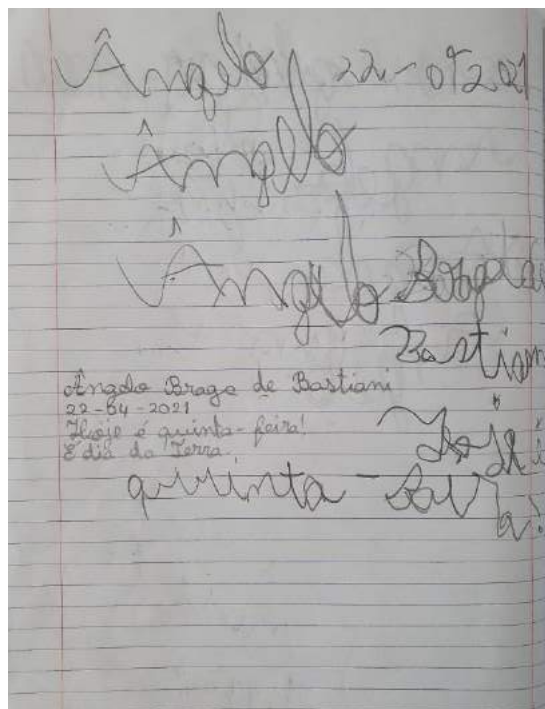 Ângelo 22-04-2021
Ângelo
Ângelo Braga de
Bastiani
Ângelo Braga de Bastiani
22-04-2021
Hoje é quinta-feira!
É dia da Terra.
Hoje é
quinta-